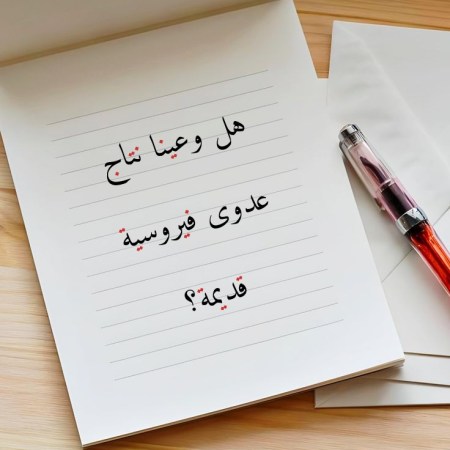 هل وعينا نتاج
عدوى فيروسية
قديمة؟